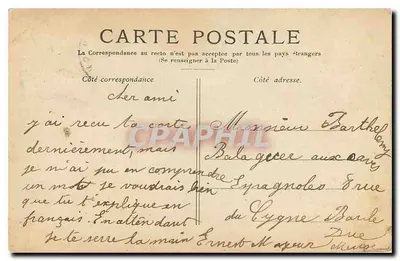 CARTE POSTALE
La Correspondance au recto n'est pas acceptée par tous les pays étrangers
(Se renseigner à la Poste)
Côté correspondance
Côté adresse.
Cher ami
j'ai recu ta carte
dernièrement, mais
je n'ai pu en comprendre
un mot je voudrais bien
que tu t'explique en
français. En attendant
je te serre la main Ernest Mayeur
Monsieur Barthelemy
Balaguer aux caves
Espagnoles 7 rue
du Cygne Bar le
Duc
Meuse
CPARAMA